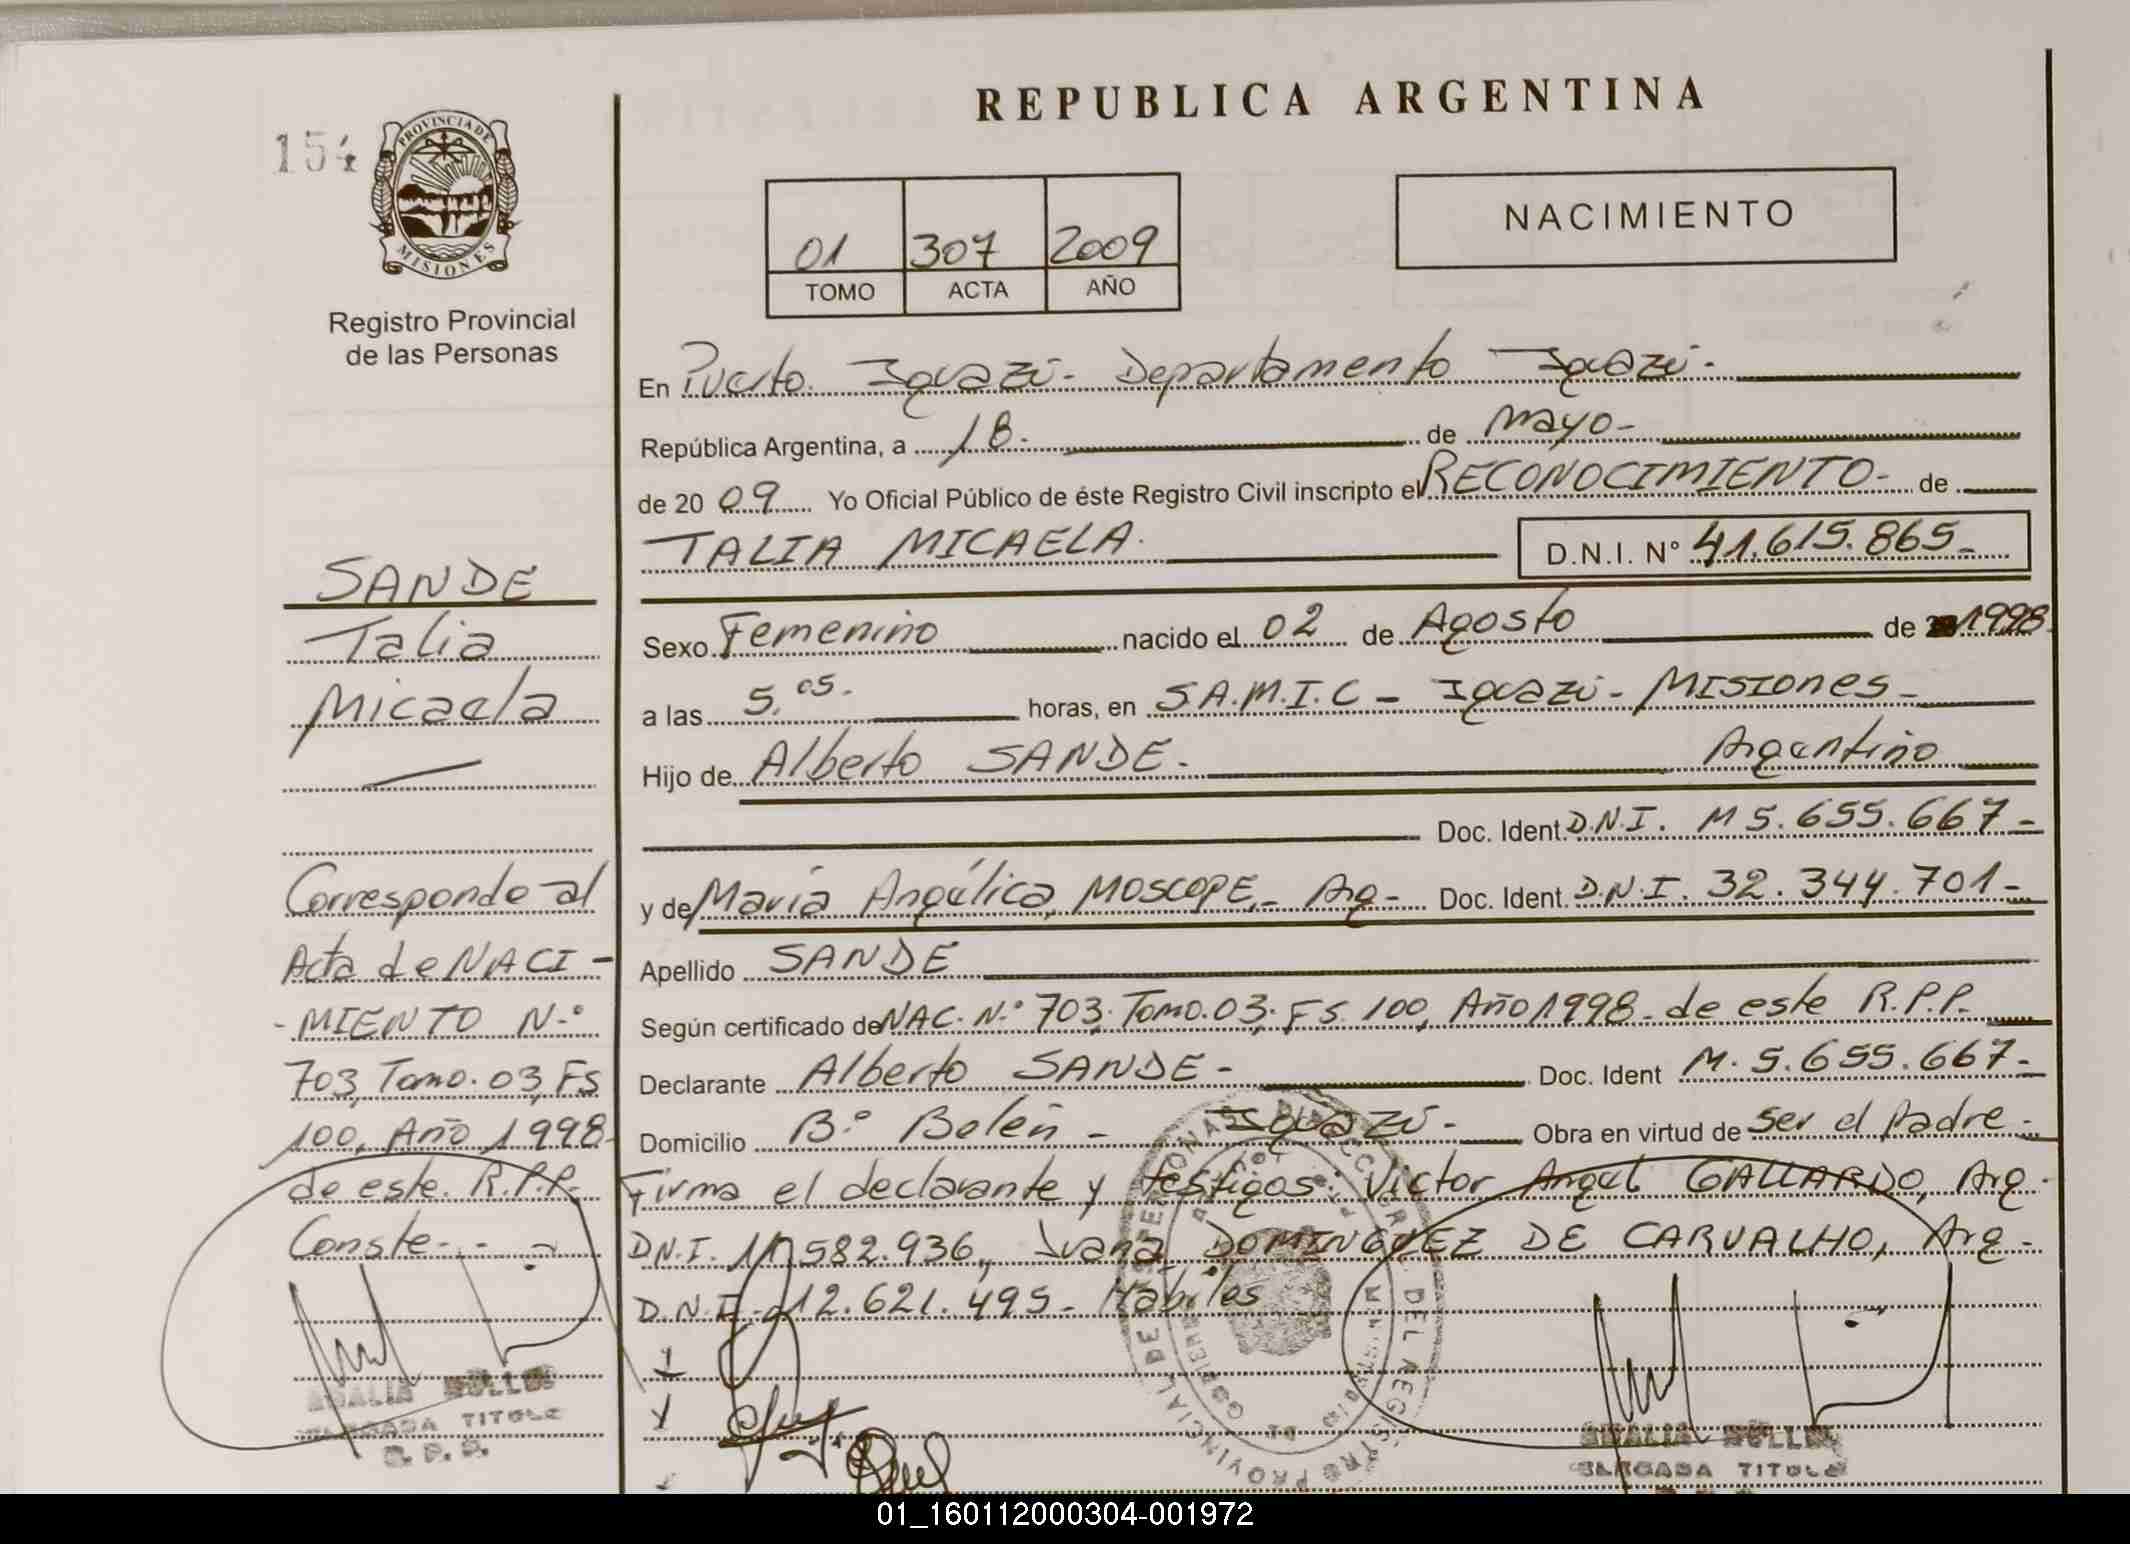 REPUBLICA ARGENTINA
154
PROVINCIA DE
MISIONES
Registro Provincial
de las Personas
01 307 2009
TOMO ACTA AÑO
NACIMIENTO
En Puerto Iguazú - Departamento Iguazú -
República Argentina, a 18 - de Mayo -
de 20 09 Yo Oficial Público de éste Registro Civil inscripto el RECONOCIMIENTO - de
TALIA MICAELA. D.N.I. N° 41.615.865 -
Sexo Femenino nacido el 02 de Agosto de 1998
a las 5,05 - horas, en S.A.M.I.C - Iguazú - Misiones -
Hijo de Alberto SANDE - Argentino
Doc. Ident. D.N.I. M 5.655.667 -
y de María Angélica, MOSCOPE, - Arg - Doc. Ident. D.N.I. 32.344.701 -
Apellido SANDE
Según certificado de NAC. N° 703, Tomo. 03, FS. 100, Año 1998 - de este R.P.P.
Declarante Alberto SANDE - Doc. Ident M. 5.655.667 -
Domicilio B° Belén - Iguazú - Obra en virtud de Ser el Padre -
Firma el declarante y testigos: Victor Angel GALLARDO, Arg -
D.N.I. 582.936, Juana DOMINGUEZ DE CARVALHO, Arg -
D.N.I. 12.621.495 - Hábiles
SANDE
Talia
Micaela
Corresponde al
Acta de NACI -
- MIENTO N°
703, Tomo. 03, FS
100, Año 1998
de este R.P.P.
Conste - . -
TITULAR
R.P.P.
TITULAR
01_160112000304-001972